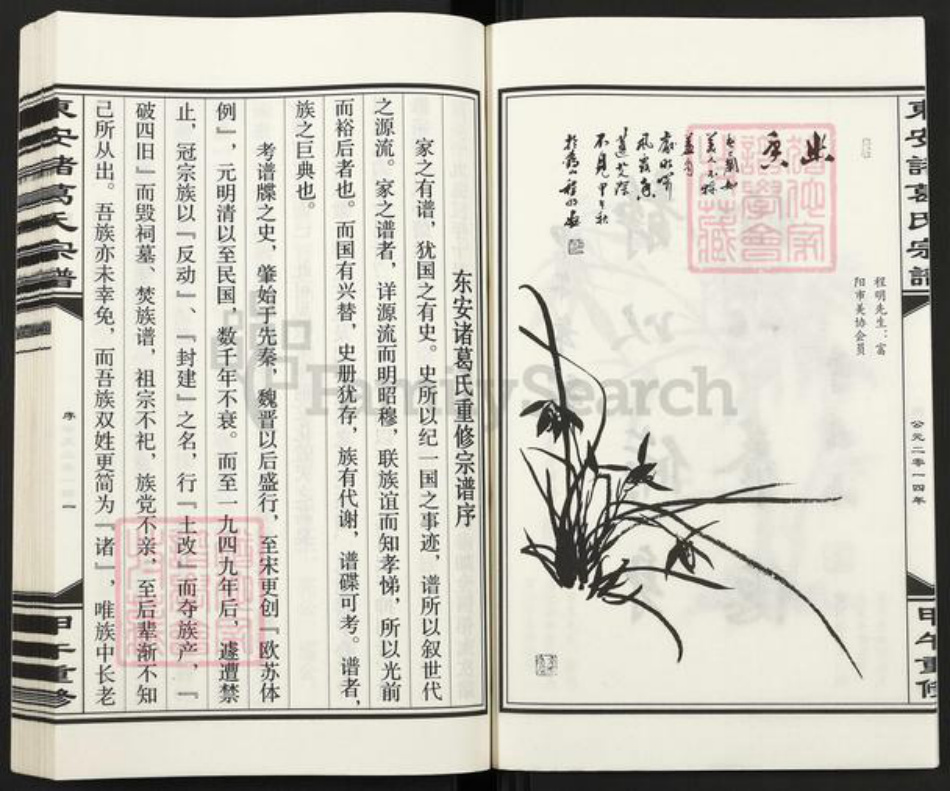 東安諸葛氏宗譜
公元二零一四年
甲午重修
程明先生：富
阳市美协会员
幽
香
不見甲午秋
東安諸葛氏宗譜
序
一
甲午重修
东安诸葛氏重修宗谱序
家之有谱，犹国之有史。史所以纪一国之事迹，谱所以叙世代
之源流。家之谱者，详源流而明昭穆，联族谊而知孝悌，所以光前
而裕后者也。而国有兴替，史册犹存，族有代谢，谱碟可考。谱者，
族之巨典也。
考谱牒之史，肇始于先秦，魏晋以后盛行，至宋更创『欧苏体
例』，元明清以至民国，数千年不衰。而至一九四九年后，遽遭禁
止，冠宗族以『反动』、『封建』之名，行『土改』而夺族产，『
破四旧』而毁祠墓、焚族谱，祖宗不祀，族党不亲，至后辈渐不知
己所从出。吾族亦未幸免，而吾族双姓更简为『诸』，唯族中长老
FamilySearch